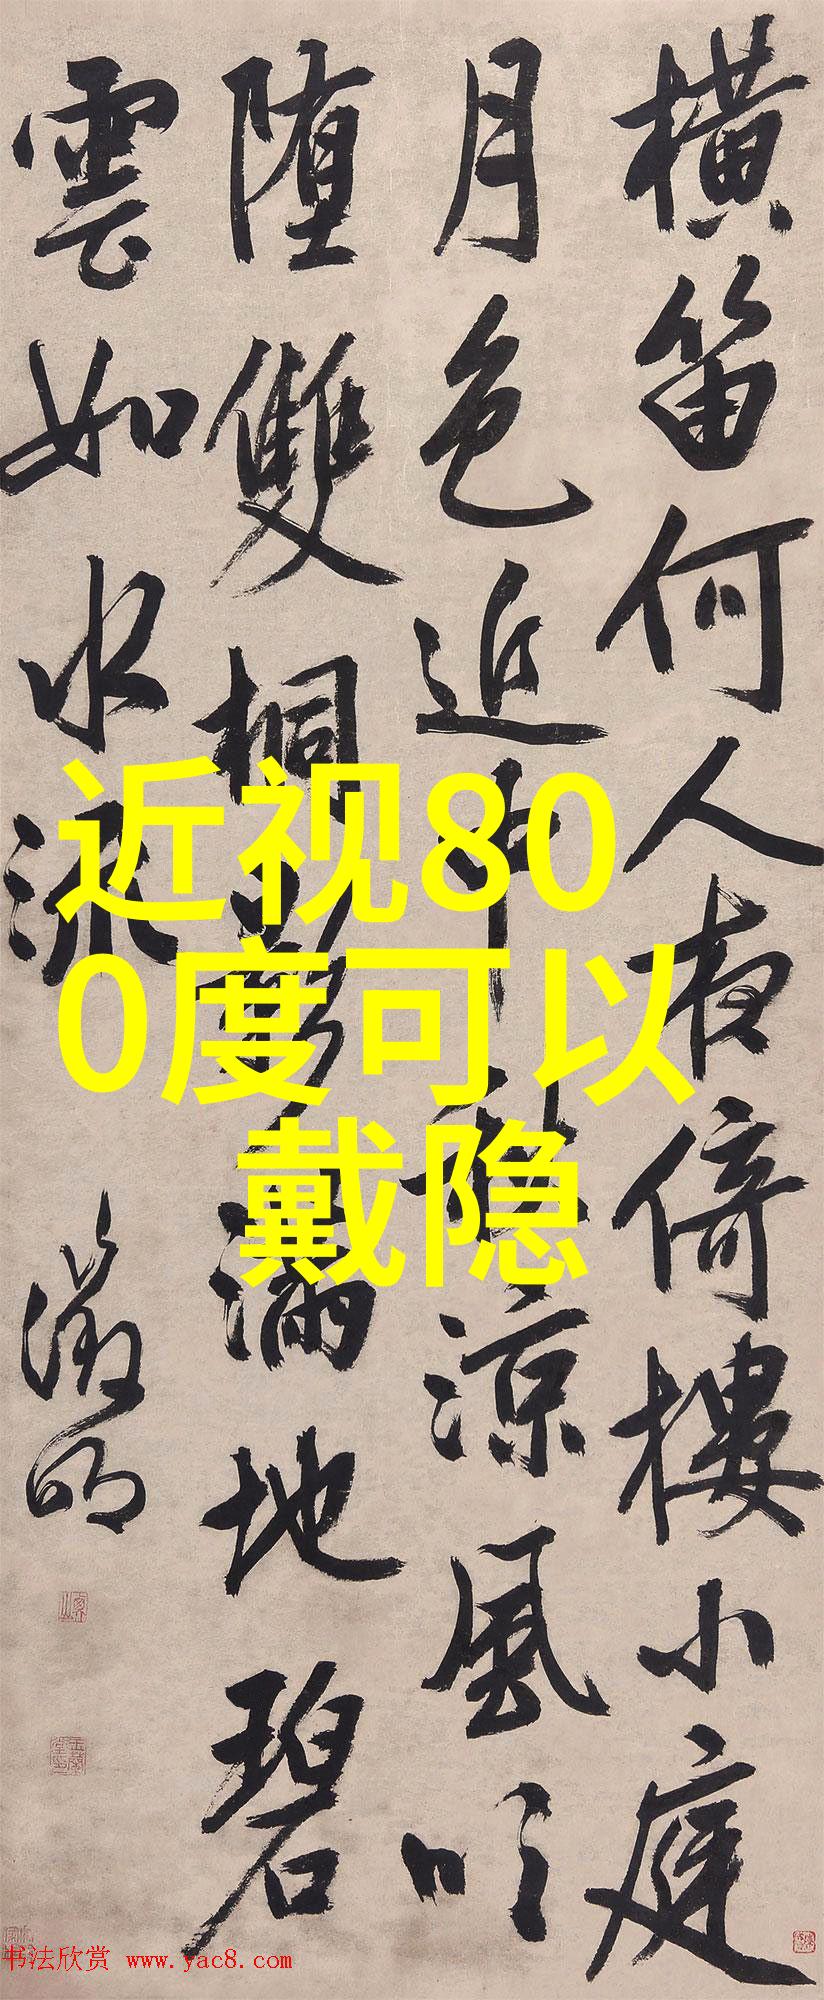 橫笛何人夜倚樓小庭
月色近中秋涼風吹
堕雙桐影滿地碧
雲如水流
徵明
近视80
0度可以
戴隐
书法欣赏 www.yac8.com